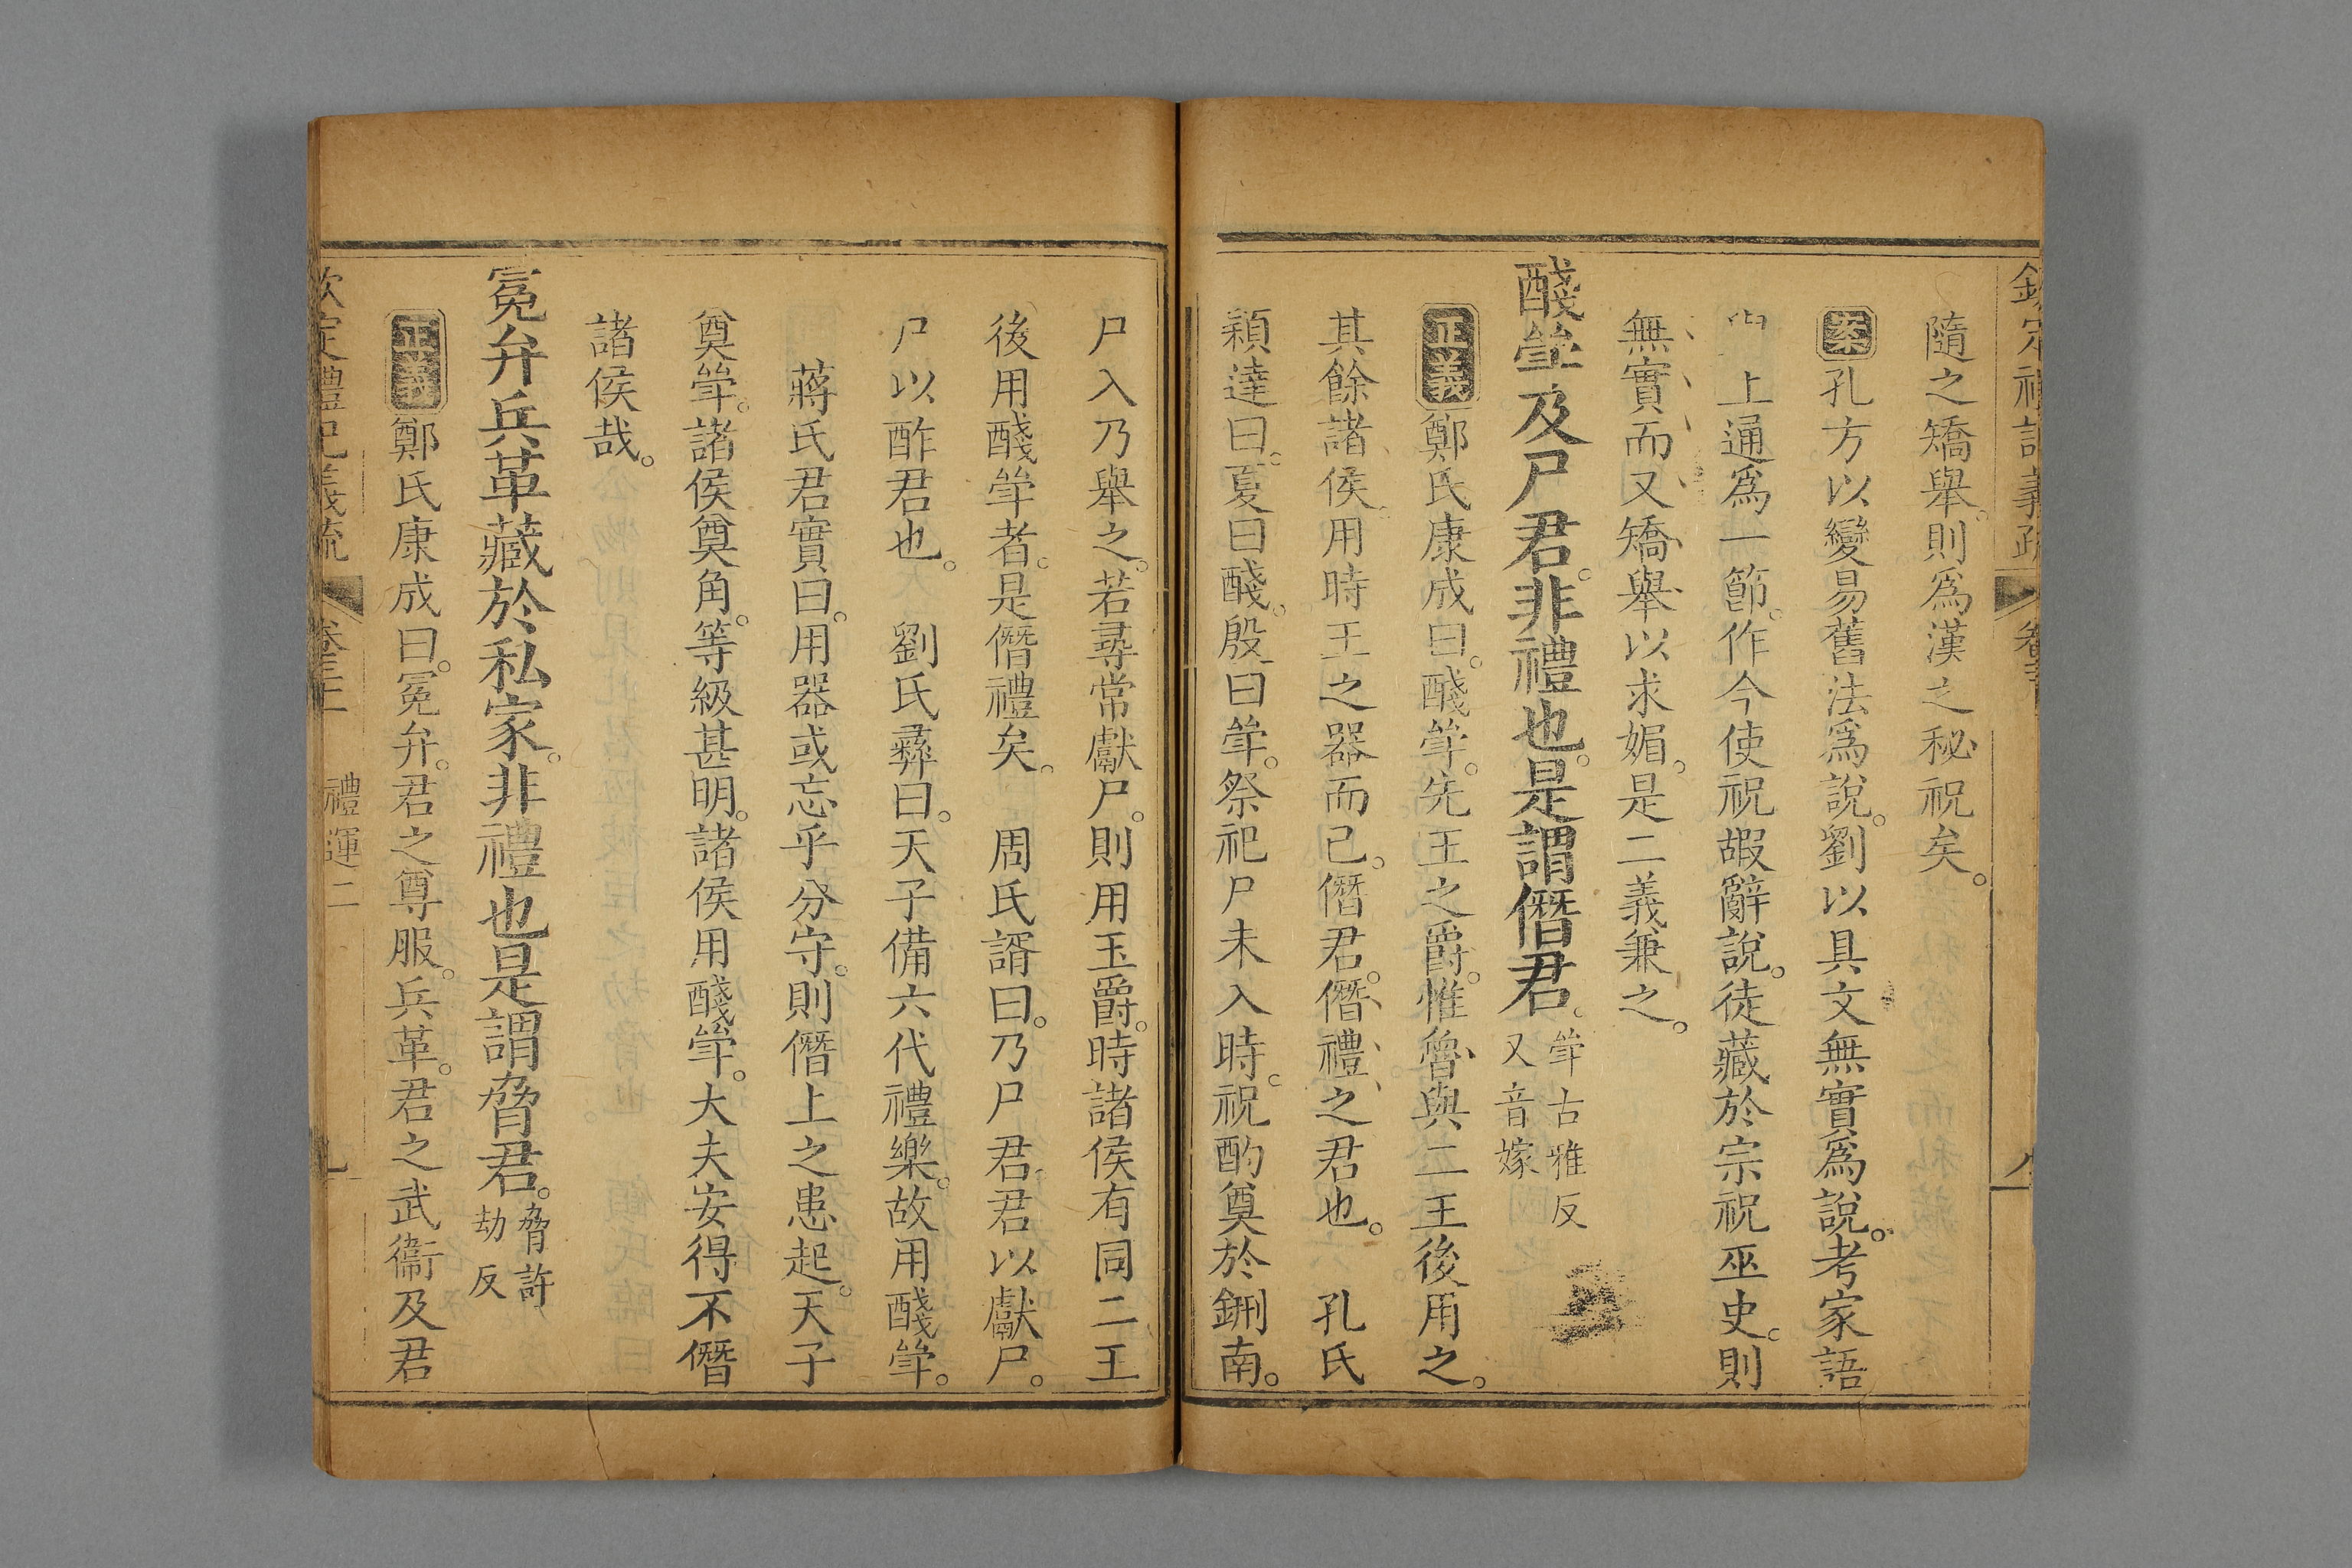 欽定禮記義疏 卷三
隨之矯舉則爲漢之秘祝矣。
案孔方以變易舊法爲說。劉以具文無實爲說。考家語
上通爲一節。作今使祝嘏辭說。徒藏於宗祝巫史。則
無實而又矯舉以求媚。是二義兼之。
醆斝及尸君。非禮也。是謂僭君。斝古雅反又音嫁
正義鄭氏康成曰。醆斝。先王之爵。惟魯與二王後用之。
其餘諸侯。用時王之器而已。僭君。僭禮之君也。 孔氏
穎達曰。夏曰醆。殷曰斝。祭祀尸未入時。祝酌奠於鉶南。
尸入乃舉之。若尋常獻尸。則用玉爵。時諸侯有同二王
後用醆斝者。是僭禮矣。 周氏諝曰。乃尸君君以獻尸。
尸以酢君也。 劉氏彝曰。天子備六代禮樂。故用醆斝。
蔣氏君實曰。用器或忘乎分守。則僭上之患起。天子
奠斝。諸侯奠角。等級甚明。諸侯用醆斝。大夫安得不僭
諸侯哉。
冕弁兵革藏於私家。非禮也。是謂脅君。脅許劫反
正義鄭氏康成曰。冕弁。君之尊服。兵革。君之武衞及君
欽定禮記義疏 卷三上 禮運二